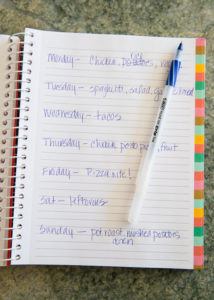 Monday - Chicken, rice
potatoes,
Tuesday - spaghetti, salad, bread
Wednesday - tacos
Thursday - chicken potato pie, fruit
Friday - Pizza nite!
Sat - leftovers
Sunday - pot roast, mashed potatoes